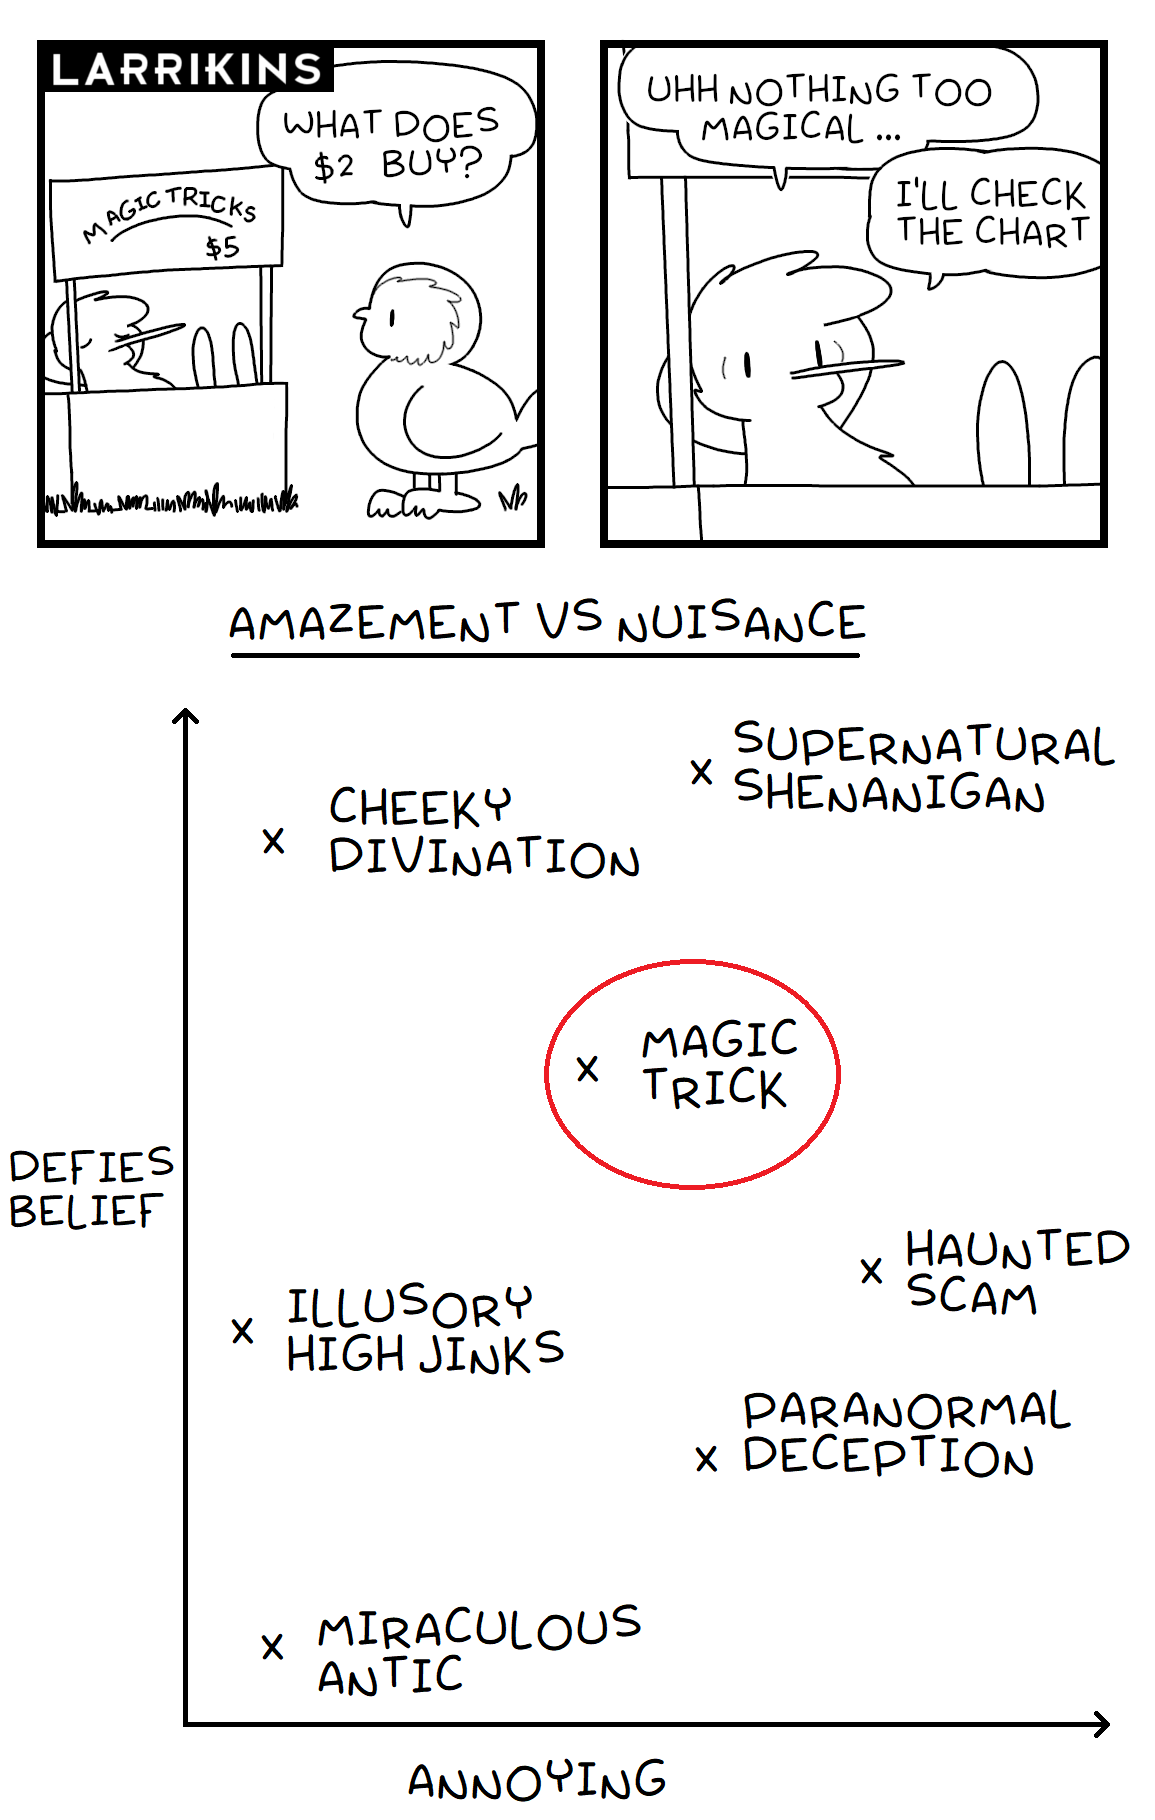 LARRIKINS
WHAT DOES
$2 BUY?
MAGIC TRICKS
$5
UHH NOTHING TOO
MAGICAL ...
I'LL CHECK
THE CHART
AMAZEMENT VS NUISANCE
SUPERNATURAL
SHENANIGAN
CHEEKY
DIVINATION
MAGIC
TRICK
DEFIES
BELIEF
HAUNTED
SCAM
ILLUSORY
HIGH JINKS
PARANORMAL
DECEPTION
MIRACULOUS
ANTIC
ANNOYING